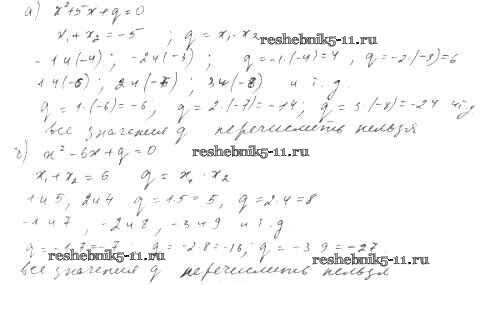 а) x²+5x+q=0
x₁+x₂=-5 ; q=x₁·x₂
reshebnik5-11.ru
-1 и (-4) ; -2 и (-3) ; q=-1·(-4)=4, q=-2·(-3)=6
1 и (-6); 2 и (-7); 3 и (-8) и т.д.
q=1·(-6)=-6, q=2·(-7)=-14; q=3·(-8)=-24 и т.д
все значения q перечислить нельзя
г) x²-6x+q=0 reshebnik5-11.ru
x₁+x₂=6 q=x₁·x₂
1 и 5, 2 и 4 q=1·5=5, q=2·4=8
-1 и 7, -2 и 8, -3 и 9 и т.д
q=-1·7=-7; q=-2·8=-16; q=-3·9=-27
reshebnik5-11.ru reshebnik5-11.ru
все значения q перечислить нельзя